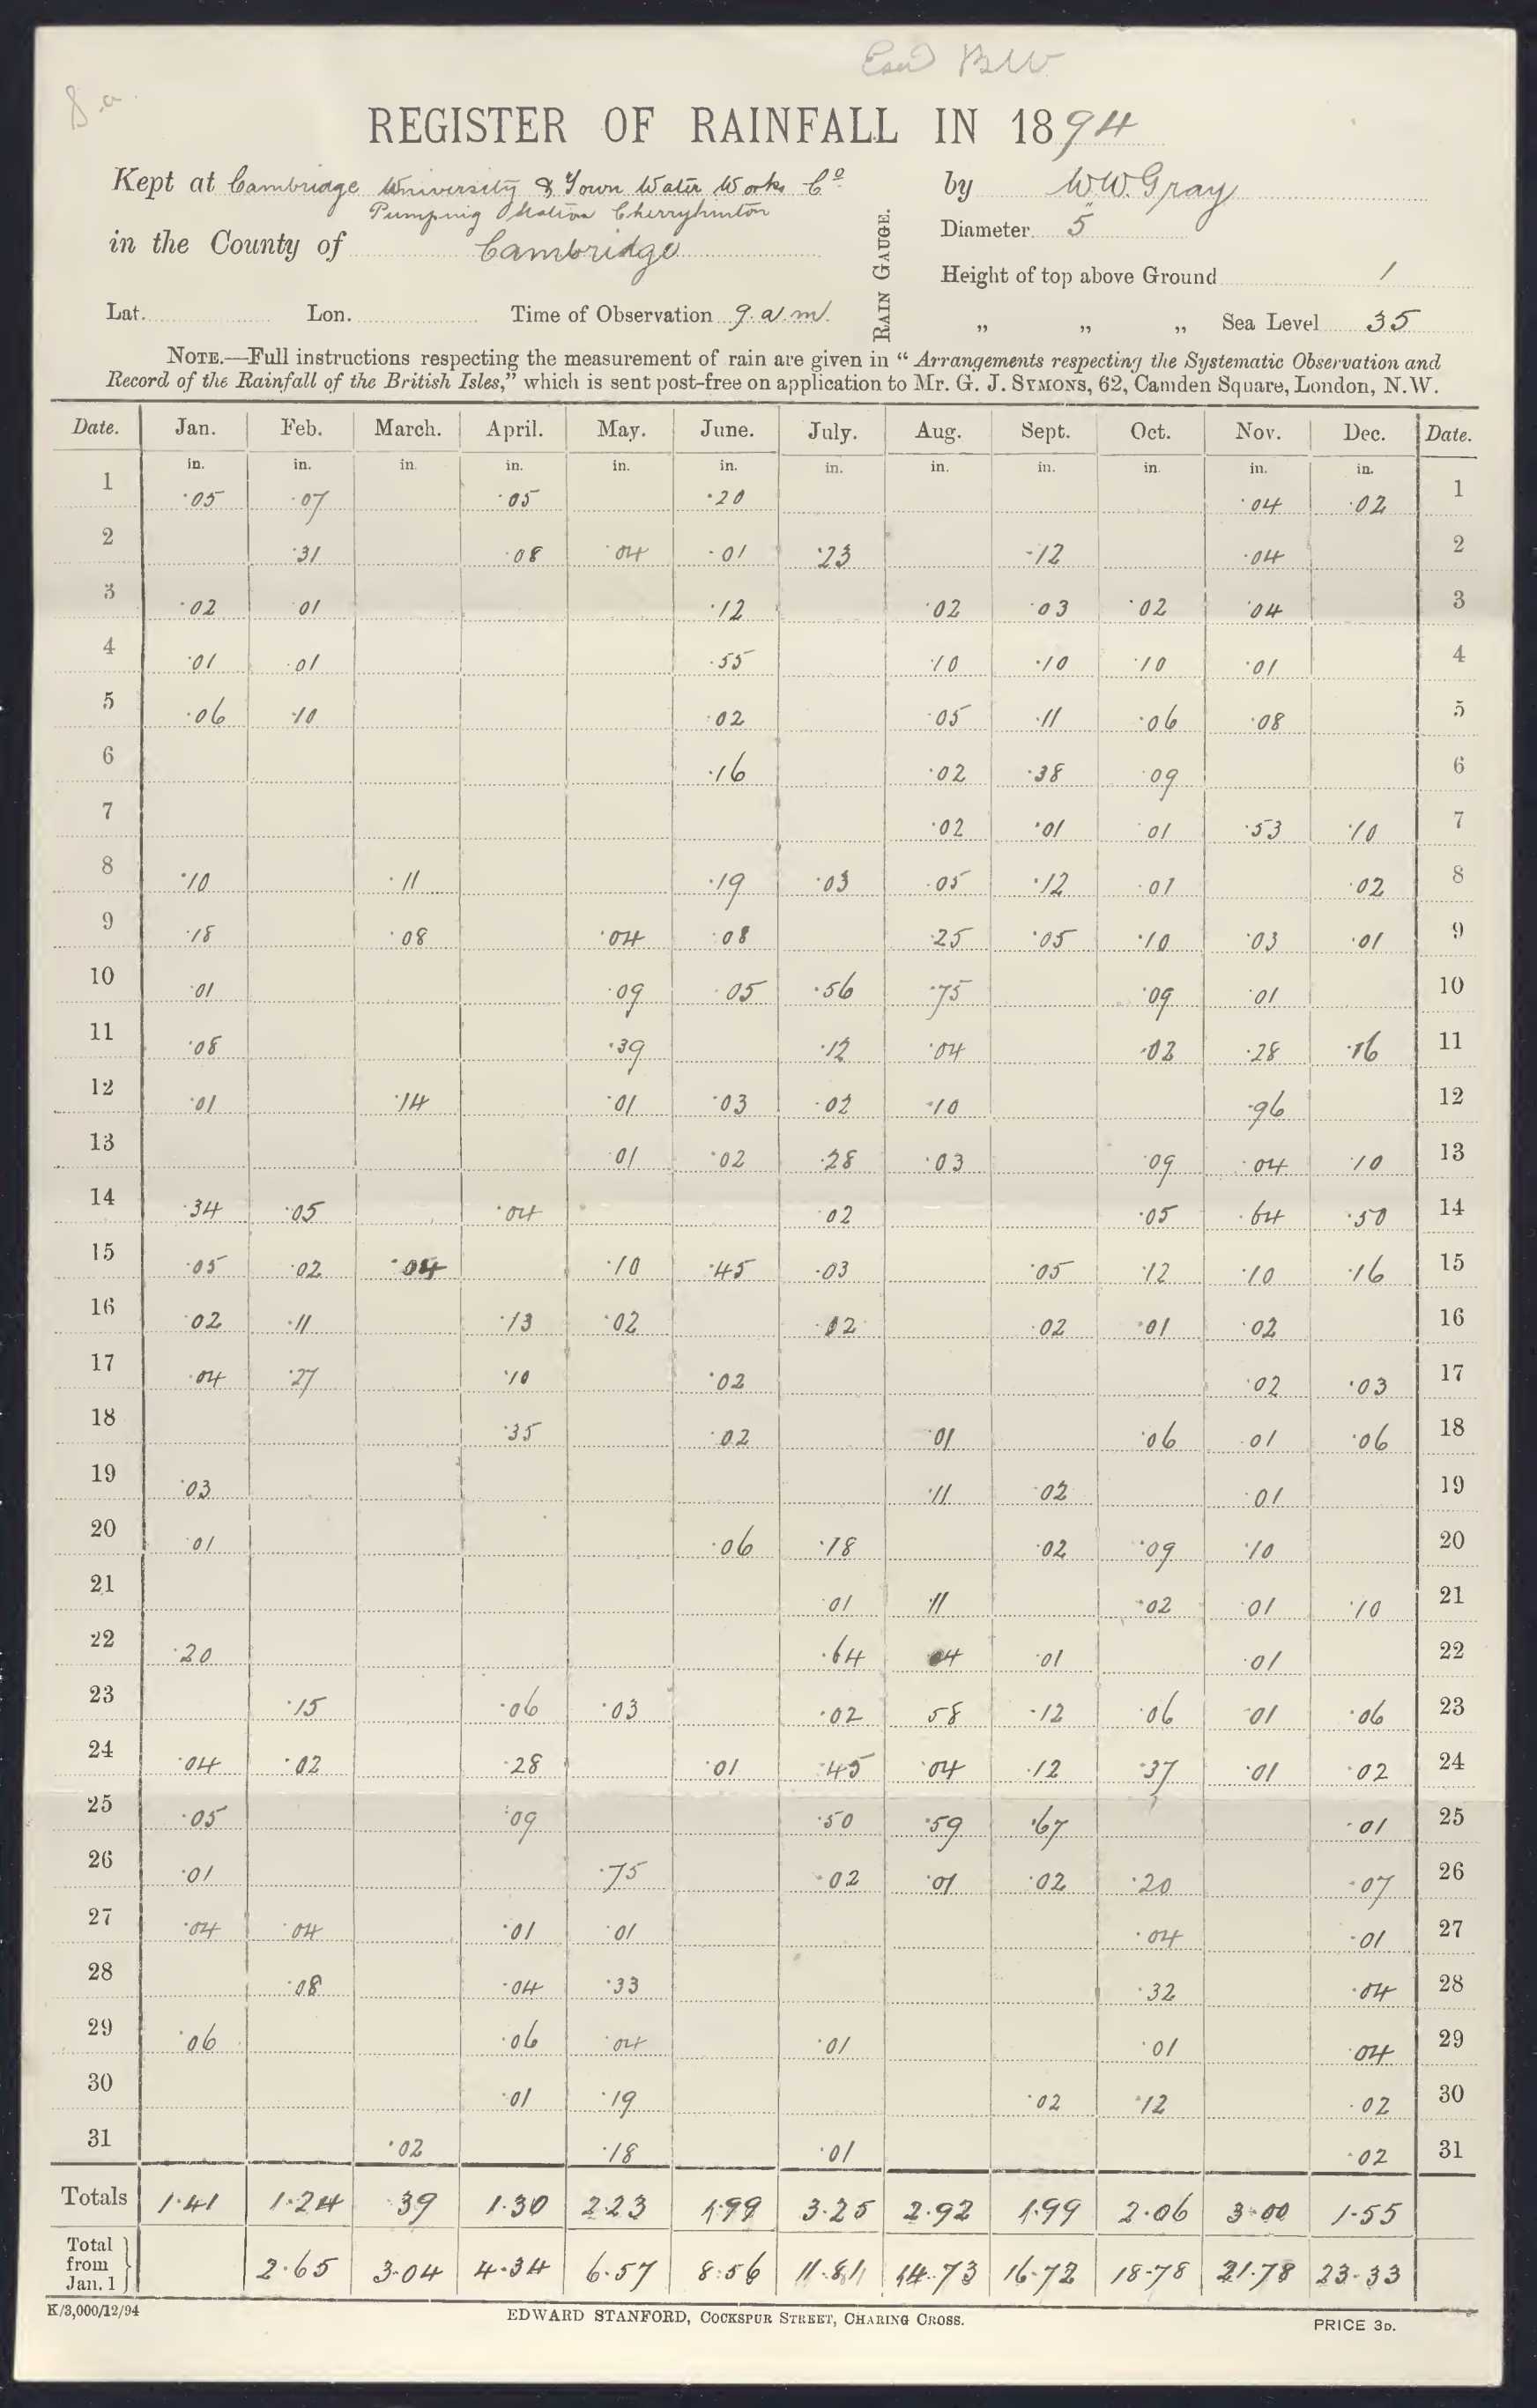 8 a.
REGISTER OF RAINFALL IN 1894
Kept at Cambridge University & Town Water Works Co
Pumping Station Cherryhinton
in the County of Cambridge
Lat. Lon. Time of Observation 9 a.m.
RAIN GAUGE.
by W.W. Gray
Diameter 5"
Height of top above Ground 1
„ „ „ Sea Level 35
NOTE.—Full instructions respecting the measurement of rain are given in “Arrangements respecting the Systematic Observation and
Record of the Rainfall of the British Isles,” which is sent post-free on application to Mr. G. J. SYMONS, 62, Camden Square, London, N.W.
Date. Jan. Feb. March. April. May. June. July. Aug. Sept. Oct. Nov. Dec. Date.
in. in. in. in. in. in. in. in. in. in. in. in.
1 ·05 ·07 ·05 ·20 ·04 ·02 1
2 ·31 ·08 ·04 ·01 ·23 ·12 ·04 2
3 ·02 01 ·12 ·02 ·03 ·02 ·04 3
4 ·01 ·01 ·55 ·10 ·10 ·10 ·01 4
5 ·06 ·10 ·02 ·05 ·11 ·06 ·08 5
6 ·16 ·02 ·38 ·09 6
7 ·02 ·01 ·01 ·53 ·10 7
8 ·10 ·11 ·19 ·03 ·05 ·12 ·01 ·02 8
9 ·18 ·08 ·04 ·08 ·25 ·05 ·10 ·03 ·01 9
10 ·01 ·09 ·05 ·56 ·75 ·09 ·01 10
11 ·08 ·39 ·12 ·04 ·02 ·28 ·16 11
12 ·01 ·14 ·01 ·03 ·02 ·10 ·96 12
13 ·01 ·02 ·28 ·03 ·09 ·04 ·10 13
14 ·34 ·05 ·04 ·02 ·05 ·64 ·50 14
15 ·05 ·02 ·04 ·10 ·45 ·03 ·05 ·12 ·10 ·16 15
16 ·02 ·11 ·13 ·02 ·12 ·02 ·01 ·02 16
17 ·04 ·27 ·10 ·02 ·02 ·03 17
18 ·35 ·02 ·01 ·06 ·01 ·06 18
19 ·03 ·11 ·02 ·01 19
20 ·01 ·06 ·18 ·02 ·09 ·10 20
21 ·01 ·11 ·02 ·01 ·10 21
22 ·20 ·64 04 ·01 ·01 22
23 ·15 ·06 ·03 ·02 58 ·12 ·06 ·01 ·06 23
24 ·04 ·02 ·28 ·01 ·45 ·04 ·12 ·37 ·01 ·02 24
25 ·05 ·09 ·50 ·59 ·67 ·01 25
26 ·01 ·75 ·02 ·01 ·02 ·20 ·07 26
27 ·04 ·04 ·01 ·01 ·04 ·01 27
28 ·08 ·04 ·33 ·32 ·04 28
29 ·06 ·06 ·04 ·01 ·01 04 29
30 ·01 ·19 ·02 ·12 ·02 30
31 ·02 ·18 ·01 ·02 31
Totals 1·41 1·24 ·39 1·30 2·23 1·99 3·25 2·92 1·99 2·06 3·00 1·55
Total from Jan. 1 2·65 3·04 4·34 6·57 8·56 11·81 14·73 16·72 18·78 21·78 23·33
K/3,000/12/94
EDWARD STANFORD, COCKSPUR STREET, CHARING CROSS.
PRICE 3D.